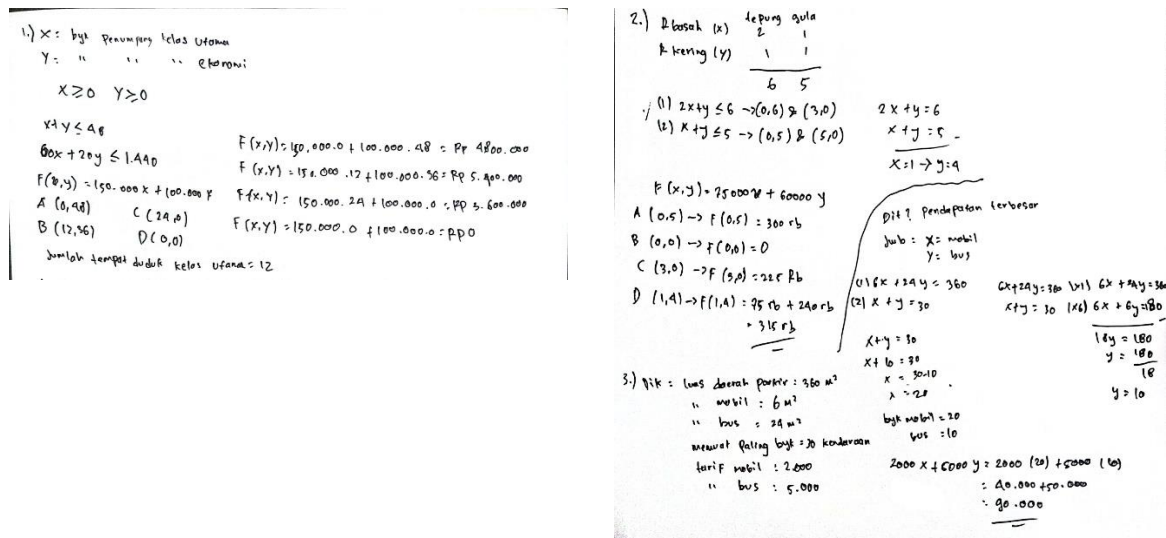 1.) X = byk penumpang kelas utama
Y = " " " ekonomi
X ≥ 0 Y ≥ 0
x+y ≤ 48
60x + 20y ≤ 1.440
F(x,y) = 150.000 x + 100.000 y
A (0,48) C (24,0)
B (12,36) D (0,0)
Jumlah tempat duduk kelas utama = 12
F (x,y) = 150.000.0 + 100.000.48 = Rp 4800.000
F (x,y) = 150.000.12 + 100.000.36 = Rp 5.400.000
F (x,y) = 150.000.24 + 100.000.0 = Rp 3.600.000
F (x,y) = 150.000.0 + 100.000.0 = Rp 0
2.) R basah (x) tepung gula
2 1
R kering (y) 1 1
6 5
(1) 2x+y ≤ 6 -> (0,6) & (3,0)
(2) x+y ≤ 5 -> (0,5) & (5,0)
2x+y = 6
x+y = 5 -
x=1 -> y=4
F (x,y) = 75000 x + 60000 y
A (0,5) -> F (0,5) = 300 rb
B (0,0) -> F (0,0) = 0
C (3,0) -> F (3,0) = 225 Rb
D (1,4) -> F (1,4) = 75 rb + 240 rb
= 315 rb
3.) Dik = luas daerah parkir : 360 m²
" mobil : 6 m²
" bus = 24 m²
memuat paling byk = 30 kendaraan
tarif mobil : 2.000
" bus : 5.000
Dit ? pendapatan terbesar
Jwb : X = mobil
Y = bus
(1) 6x + 24y = 360
(2) x + y = 30
6x+24y = 360 |x1| 6x + 24y = 360
x+y = 30 |x6| 6x + 6y = 180 -
18y = 180
y = 180
18
y = 10
x+y = 30
x+10 = 30
x = 30-10
x = 20
byk mobil = 20
bus = 10
2000 x + 5000 y = 2000 (20) + 5000 (10)
= 40.000 + 50.000
= 90.000